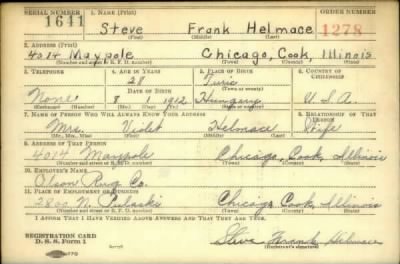 SERIAL NUMBER 1. NAME (Print) ORDER NUMBER
1641 Steve Frank Helmace 1278
(First) (Middle) (Last)
2. ADDRESS (Print)
4014 Maypole Chicago, Cook, Illinois
(Number and street or R. F. D. number) (Town) (County) (State)
3. TELEPHONE 4. AGE IN YEARS 5. PLACE OF BIRTH 6. COUNTRY OF CITIZENSHIP
28
DATE OF BIRTH (Town or county)
None 8 1912 Hungary U.S.A.
(Exchange) (Number) (Mo.) (Day) (Yr.) (State or country)
7. NAME OF PERSON WHO WILL ALWAYS KNOW YOUR ADDRESS 8. RELATIONSHIP OF THAT PERSON
Mrs. Violet Helmace Wife
(Mr., Mrs., Miss) (First) (Middle) (Last)
9. ADDRESS OF THAT PERSON
4014 Maypole Chicago, Cook, Illinois
(Number and street or R. F. D. number) (Town) (County) (State)
10. EMPLOYER'S NAME
Olson Rug Co.
11. PLACE OF EMPLOYMENT OR BUSINESS
2800 N. Pulaski Chicago, Cook, Illinois
(Number and street or R. F. D. number) (Town) (County) (State)
I AFFIRM THAT I HAVE VERIFIED ABOVE ANSWERS AND THAT THEY ARE TRUE.
REGISTRATION CARD
D. S. S. Form 1 Steve Frank Helmace
(Registrant's signature)